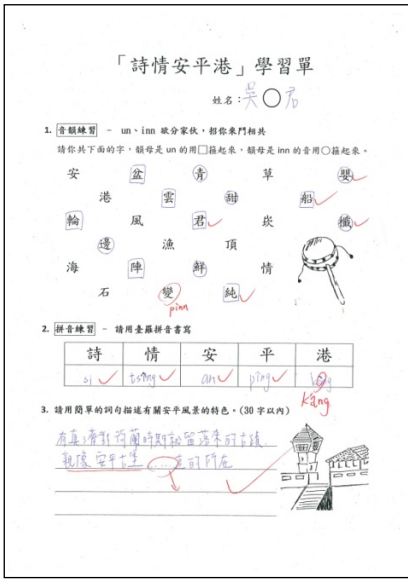 「詩情安平港」學習單
姓名：吳○君
1. 音韻練習 － un、inn 欲分家伙，招你來鬥相共
請你共下面的字，韻母是 un 的用□箍起來，韻母是 inn 的音用○箍起來。
安 盆 青 草 嬰
港 雲 甜 船
輪 風 君 崁 櫼
邊 漁 頂
海 陣 鮮 情
石 變 純
pinn
2. 拼音練習 － 請用臺羅拼音書寫
詩 情 安 平 港
si tsîng an pîng
káng
3. 請用簡單的詞句描述有關安平風景的特色。(30 字以內)
有真濟對荷蘭時期留落來的古蹟.
親像安平古堡……的所在